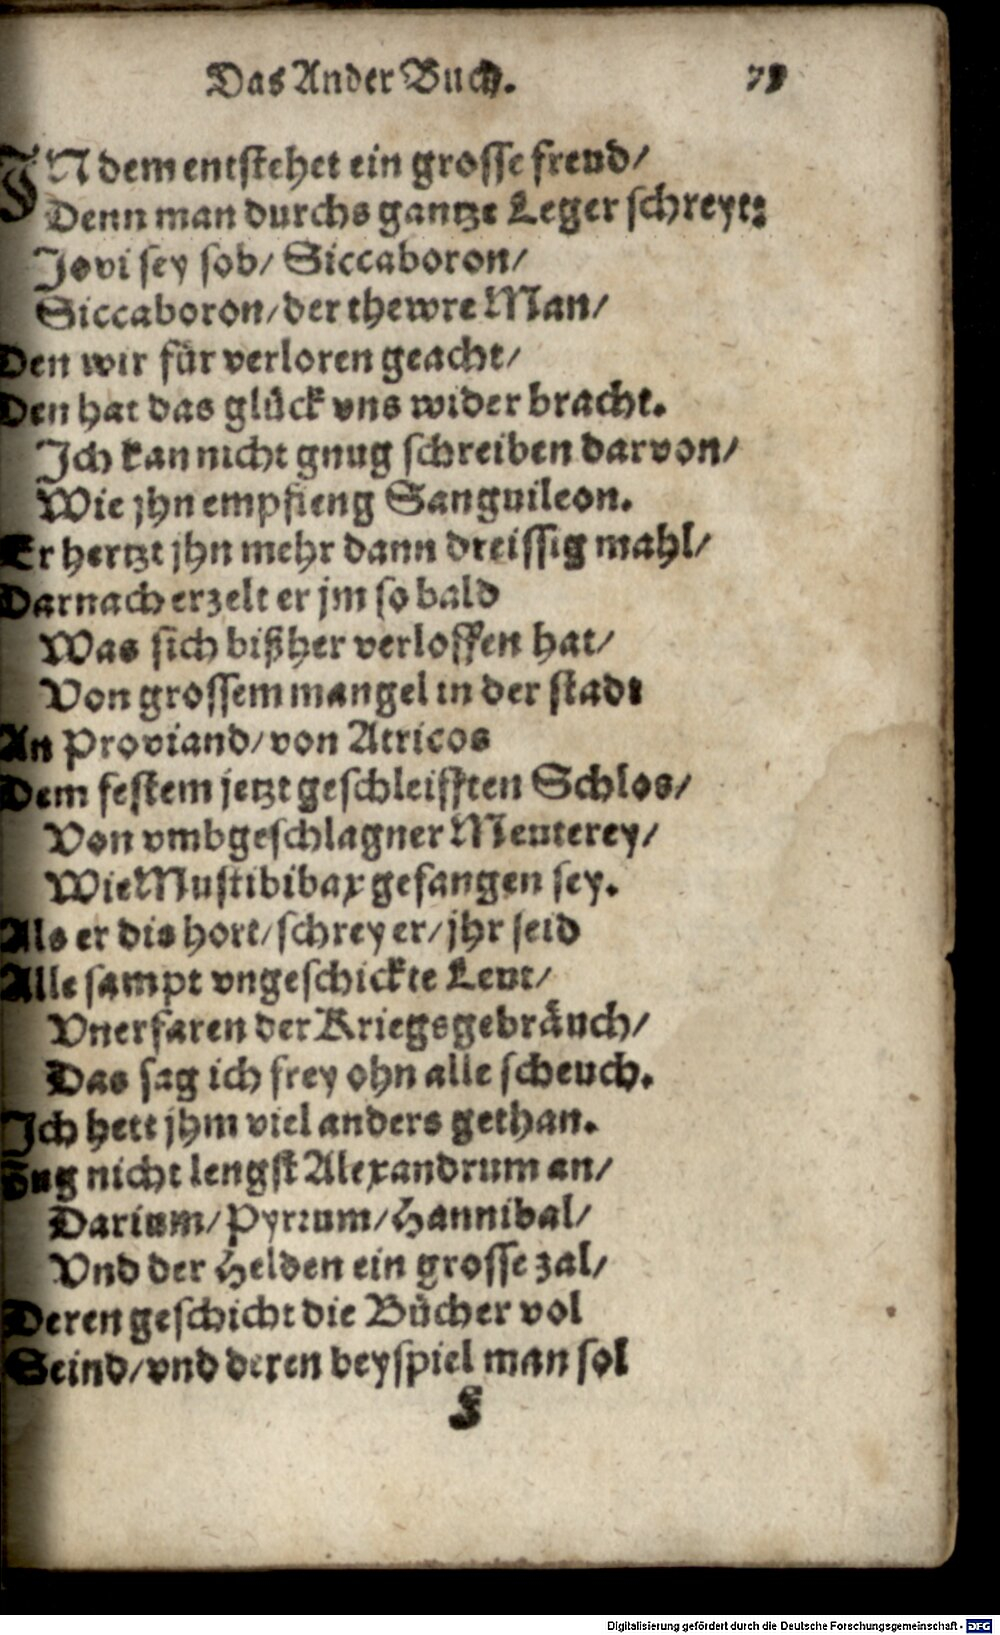 Das Ander Buch.
INdem entstehet ein grosse frend/
Denn man durchs gantze Leger schreyt:
Jovi sey lob/ Siccaboron/
Siccaboron/ der thewre Man/
Den wir für verloren geacht/
Den hat das glück vns wider bracht.
Ich kan nicht gnug schreiben darvon/
Wie jhn empfieng Sanguileon.
Er hertzt jhn mehr dann dreissig mahl/
Darnach erzelt er jm so bald
Was sich bißher verloffen hat/
Von grossem mangel in der stadt
An Proviand/ von Atricos
Dem festem jetzt geschleifften Schlos/
Von vmbgeschlagner Meuterey/
Wie Mustibibax gefangen sey.
Als er dis hort/ schrey er/ jhr seid
Alle sampt vngeschickte Leut/
Vnerfaren der Kriegsgebräuch/
Das sag ich frey ohn alle scheuch.
Ich hett jhm viel anders gethan.
nicht lengst Alexandrum an/
Darium/ Pyrrum/ Hannibal/
Vnd der Helden ein grosse zal/
Deren geschicht die Bücher vol
Seind/ vnd deren beyspiel man sol
Digitalisierung gefördert durch die Deutsche Forschungsgemeinschaft - DFG